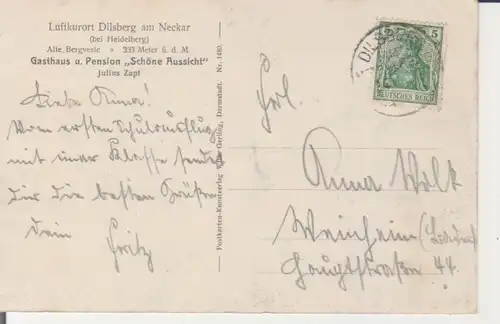 Luftkurort Dilsberg am Neckar
(bei Heidelberg)
Alte Bergveste » 333 Meter ü. d. M
Gasthaus u. Pension „Schöne Aussicht"
Julius Zapf
Liebe Anna!
Vom ersten Schulausflug
mit einer Klasse sendet
Dir die besten Grüße
dein
Fritz
Postkarten-Kunstverlag Gerling, Darmstadt. Nr. 1480.
DILSB
5
DEUTSCHES REICH
Frl.
Anna Wolk
Weinheim
Hauptstraße 44.